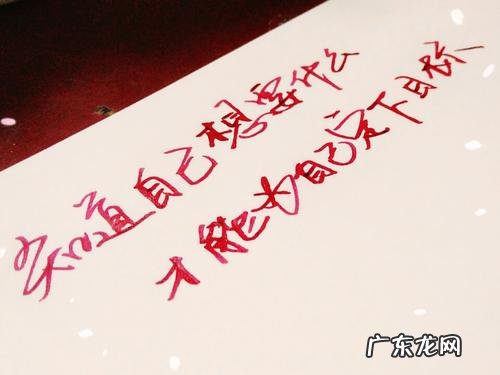 知道自己想要什么
才能为自己定下目标
广东龙网